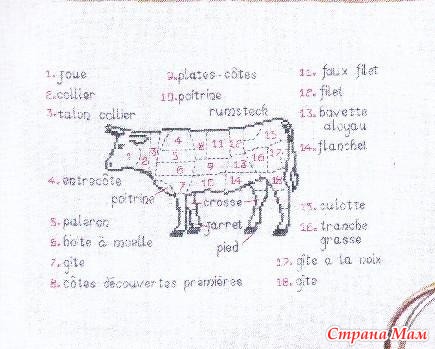 1. joue
2. collier
3. talon collier
9. plates-côtes
10. poitrine
rumsteck
11. faux filet
12. filet
13. bavette
aloyau
14. flanchet
4. entrecôte
poitrine
5. paleron
6. boîte à moelle
7. gîte
8. côtes découvertes premières
crosse
jarret
pied
15. culotte
16. tranche
grasse
17. gîte à la noix
18. gîte
1 2 3 4 5 6 7 8 9 10 11 12 13 14 15 16 17 18
Страна Мам